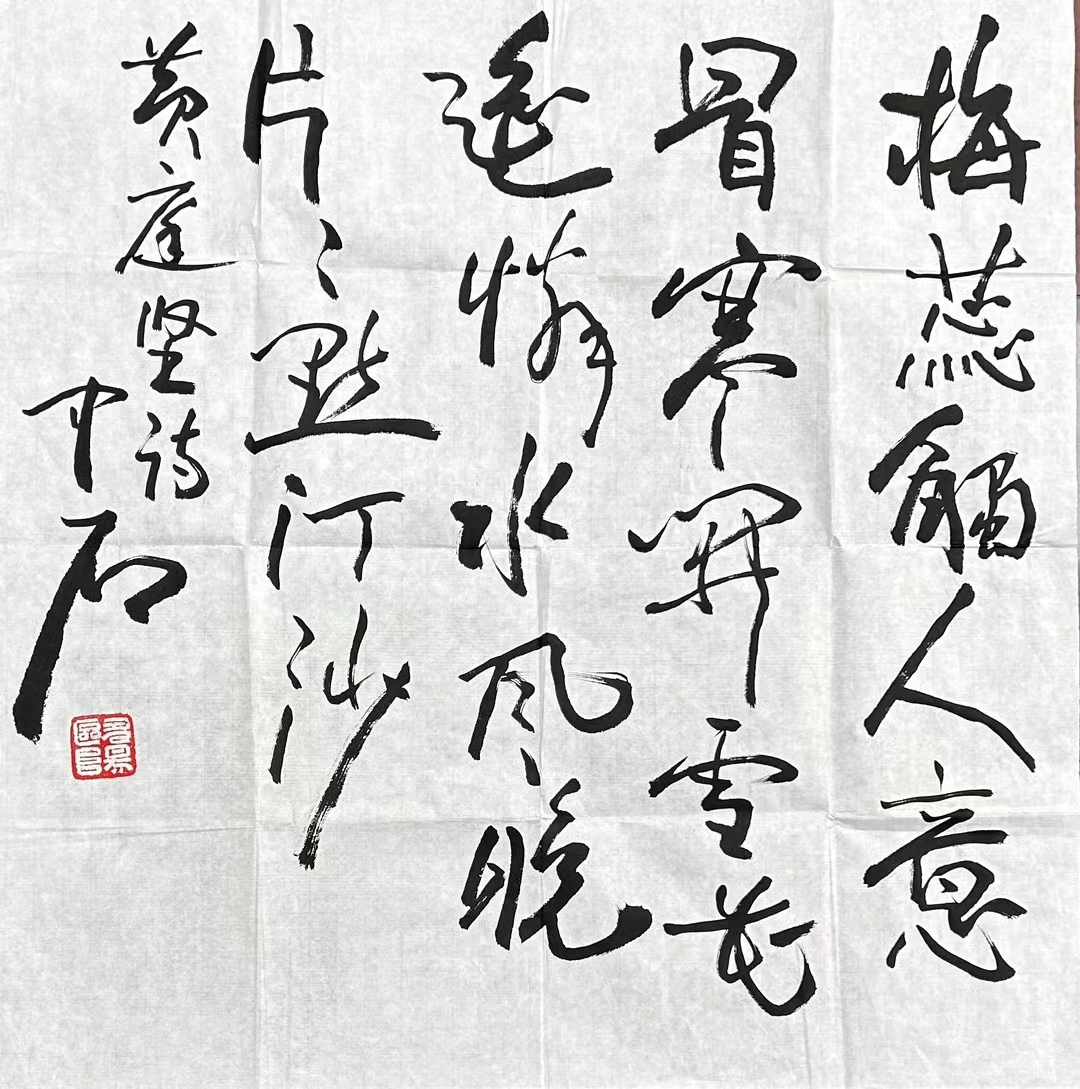 梅蕊觸人意
冒寒開雪花
遙憐水风晚
片〻點汀沙
黄庭坚诗
中石